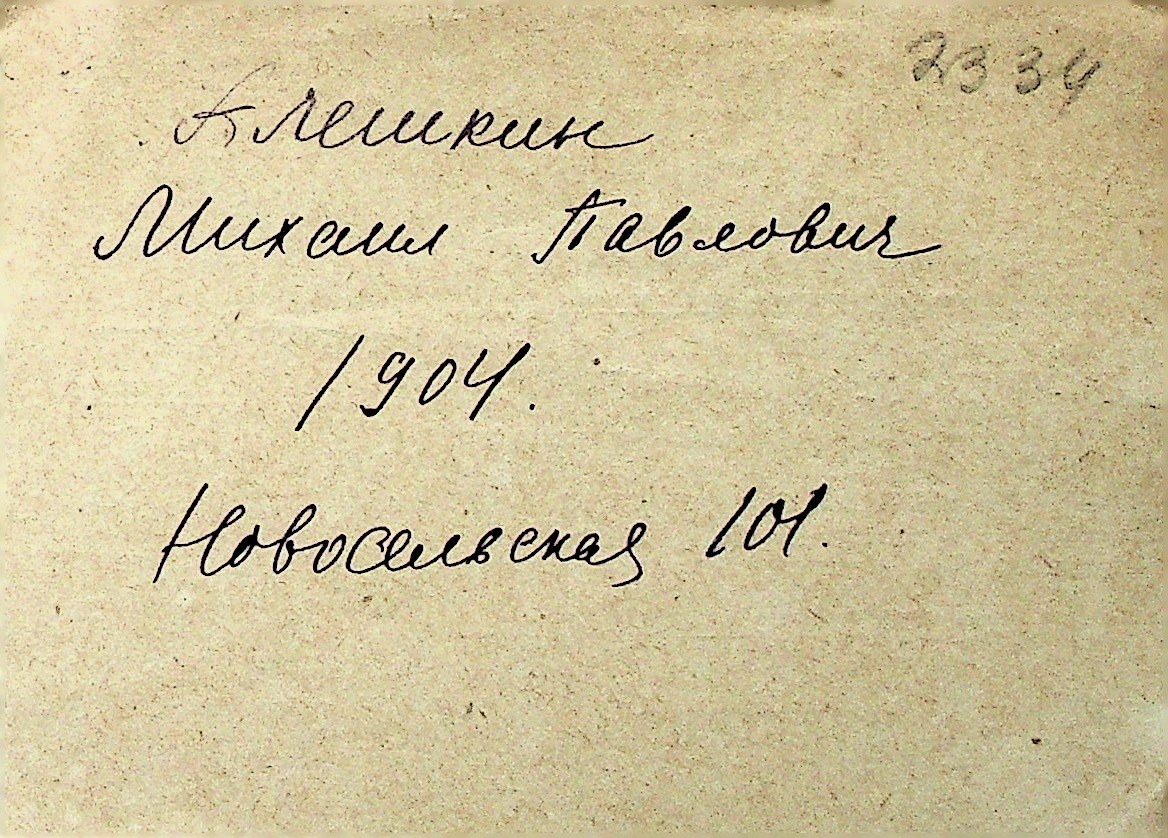 2334
Алешкин
Михаил Павлович
1904.
Новосельская 101.